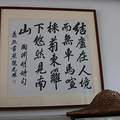 結廬在人境
而無車馬喧
採菊東籬
下悠然見南
山
陶淵明詩句